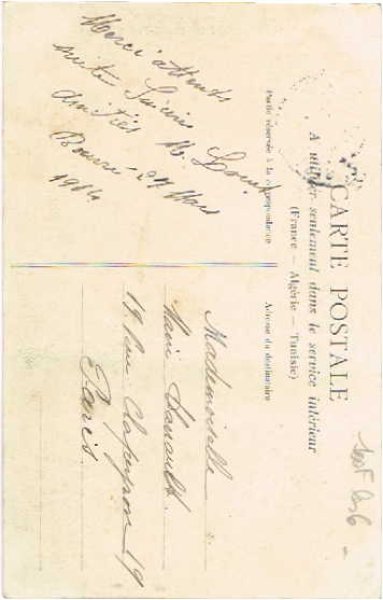 CARTE POSTALE
A utiliser seulement dans le service intérieur
(France — Algérie — Tunisie)
Partie réservée à la correspondance
Adresse du destinataire
Merci attends
suite
amitiés M. Louis
27 Mars
1904
Mademoiselle
Marie
19 rue Clapeyron 19
Paris